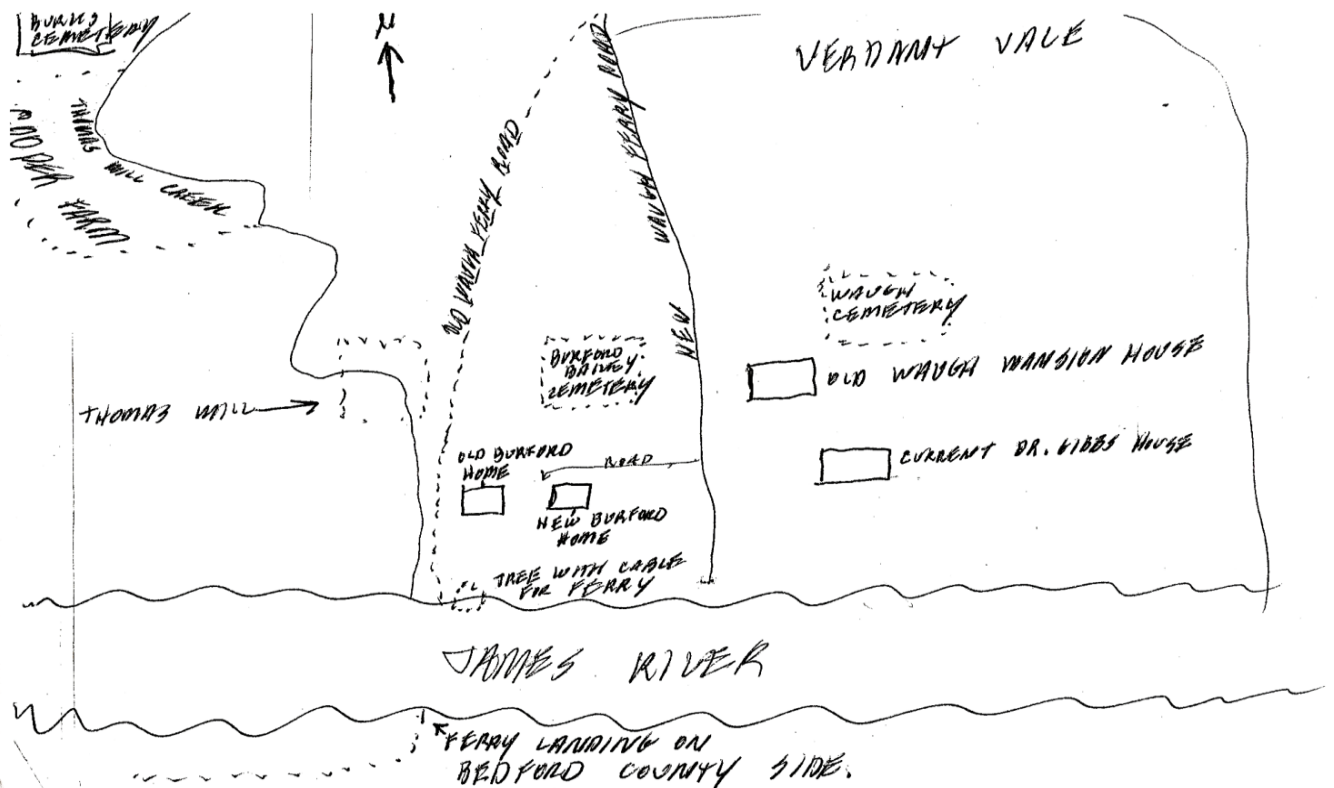 BURKS
CEMETERY
N
VERDANT VALE
THOMAS MILL CREEK
COOPER FARM
OLD WAUGH FERRY ROAD
NEW WAUGH FERRY ROAD
WAUGH
CEMETERY
BURFORD
BAILEY
CEMETERY
OLD WAUGH MANSION HOUSE
THOMAS MILL
OLD BURFORD
HOME
ROAD
CURRENT DR. GIBBS HOUSE
NEW BURFORD
HOME
TREE WITH CABLE
FOR FERRY
JAMES RIVER
FERRY LANDING ON
BEDFORD COUNTY SIDE.